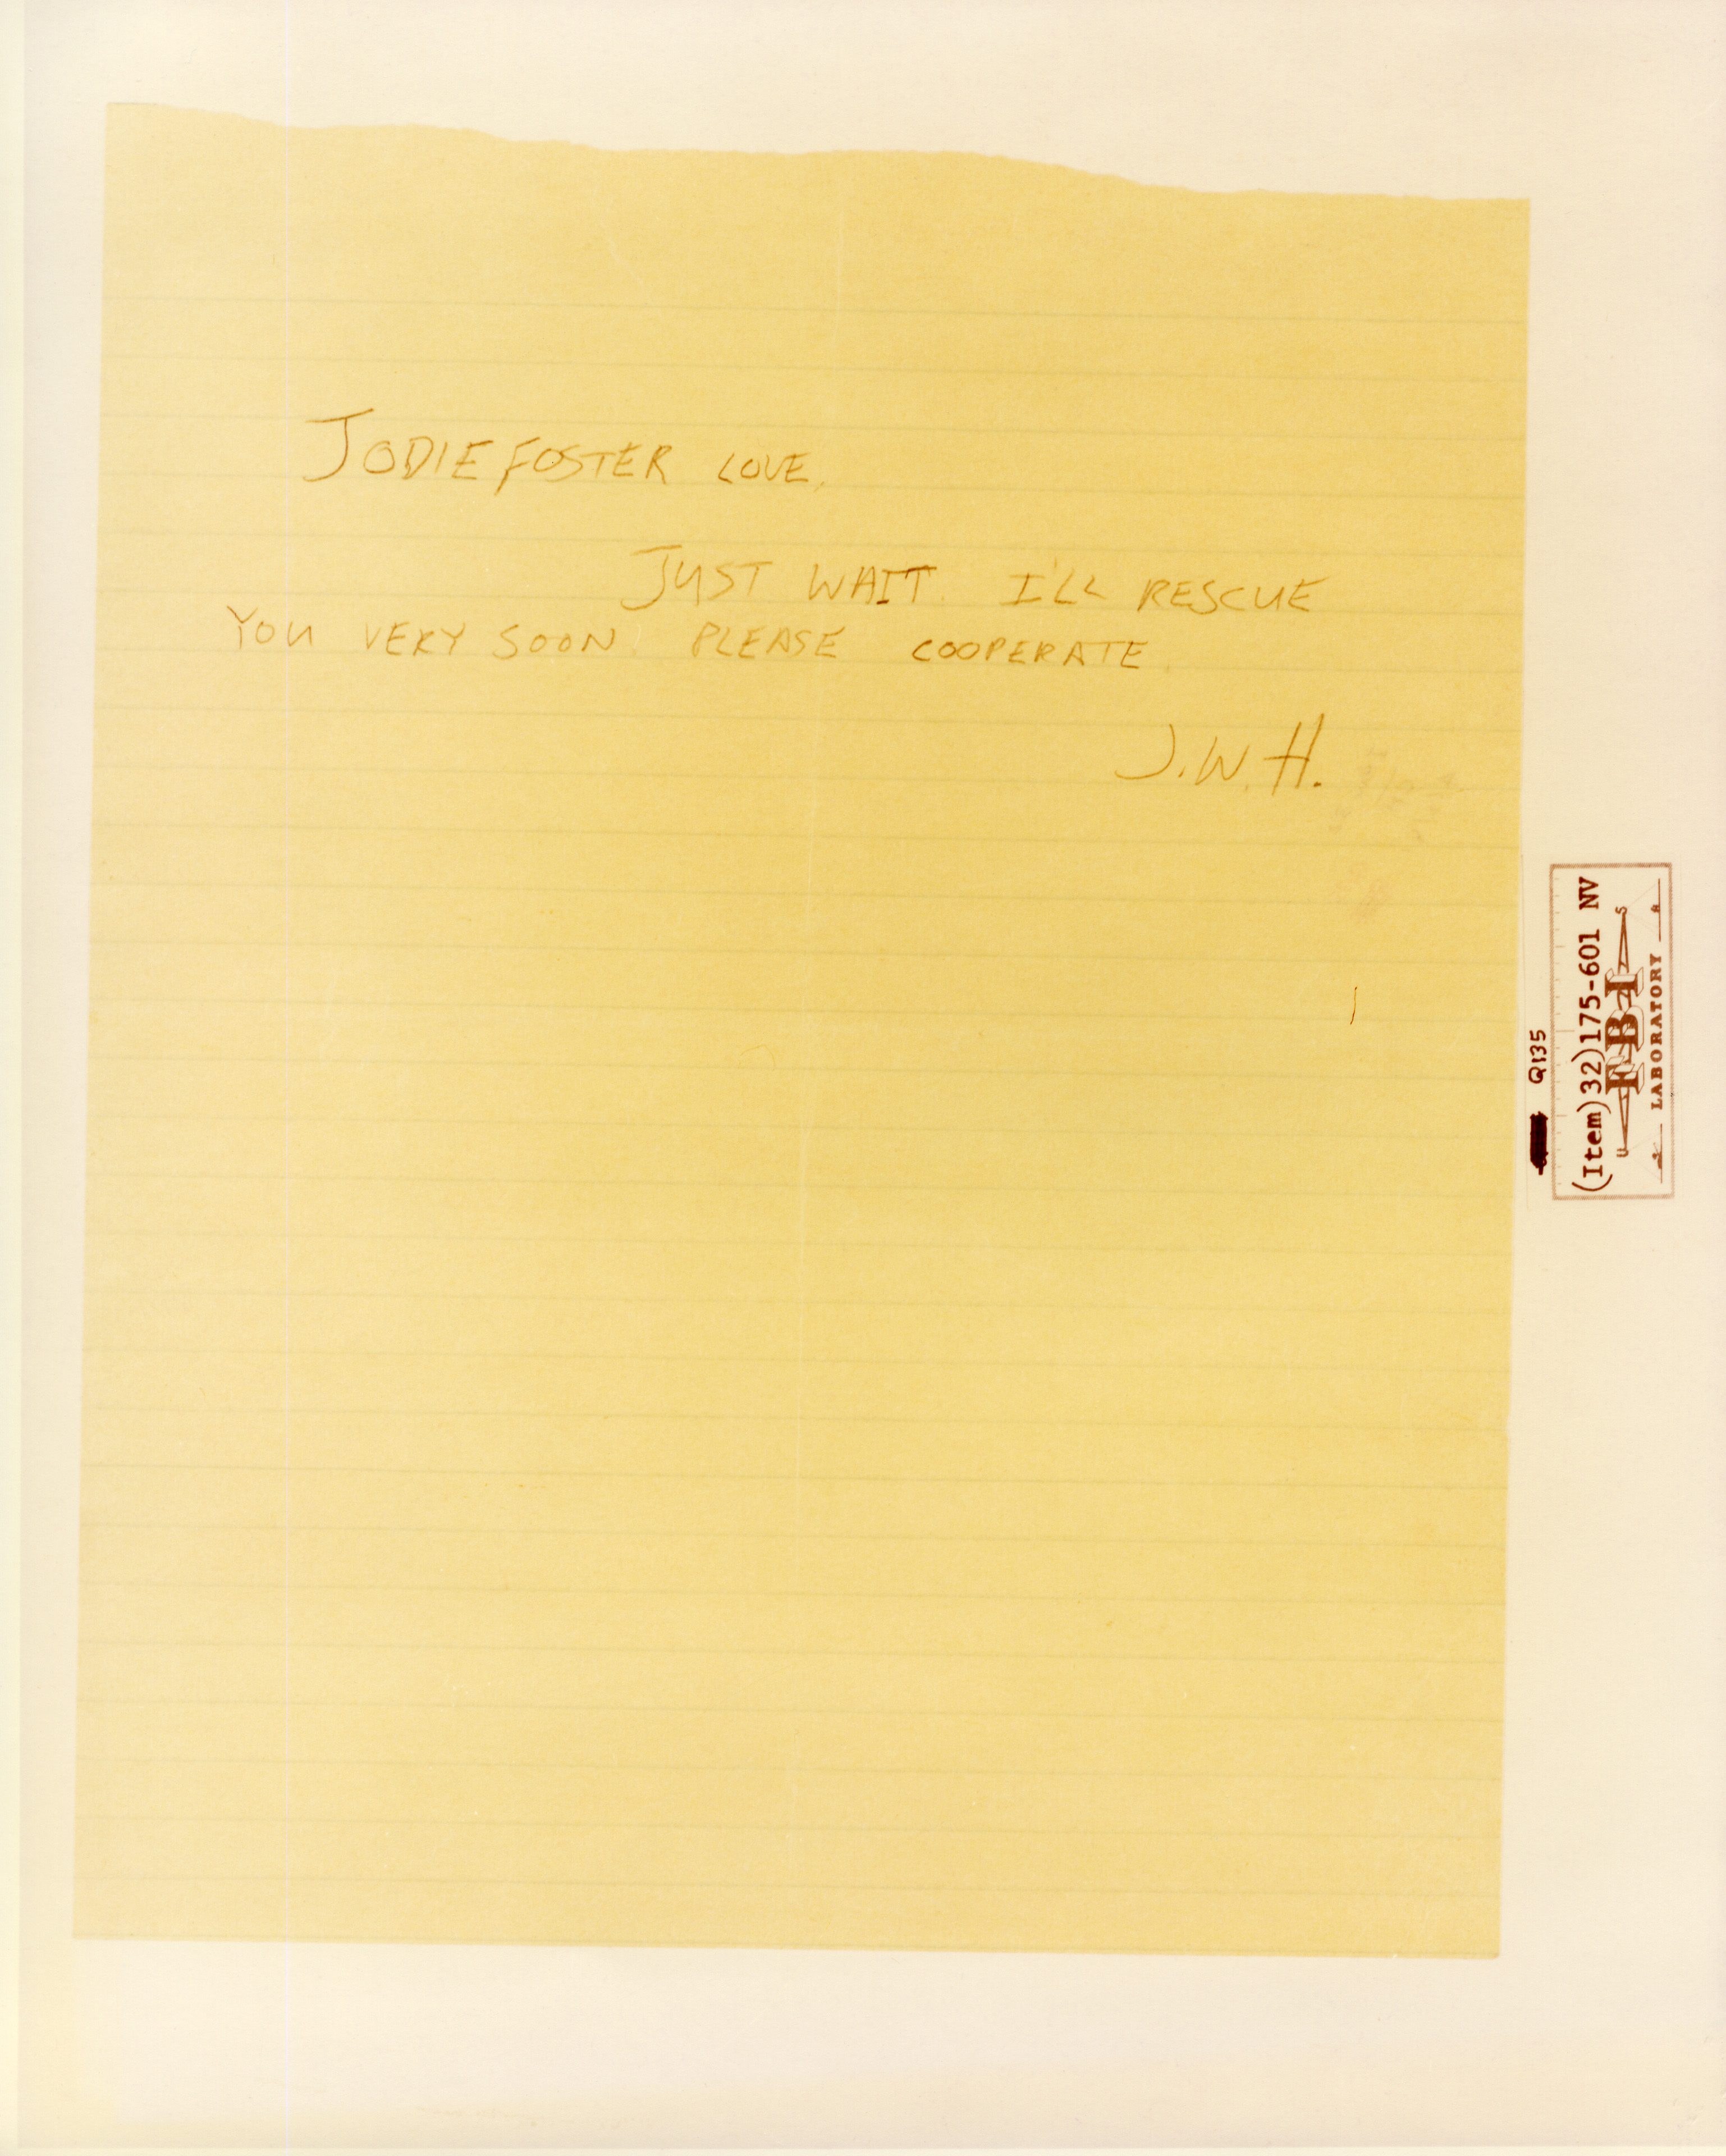 JODIE FOSTER LOVE,
JUST WAIT. I'LL RESCUE
YOU VERY SOON. PLEASE COOPERATE.
J.W.H.
Q135
(Item)32)175-601 NV
FBI
LABORATORY